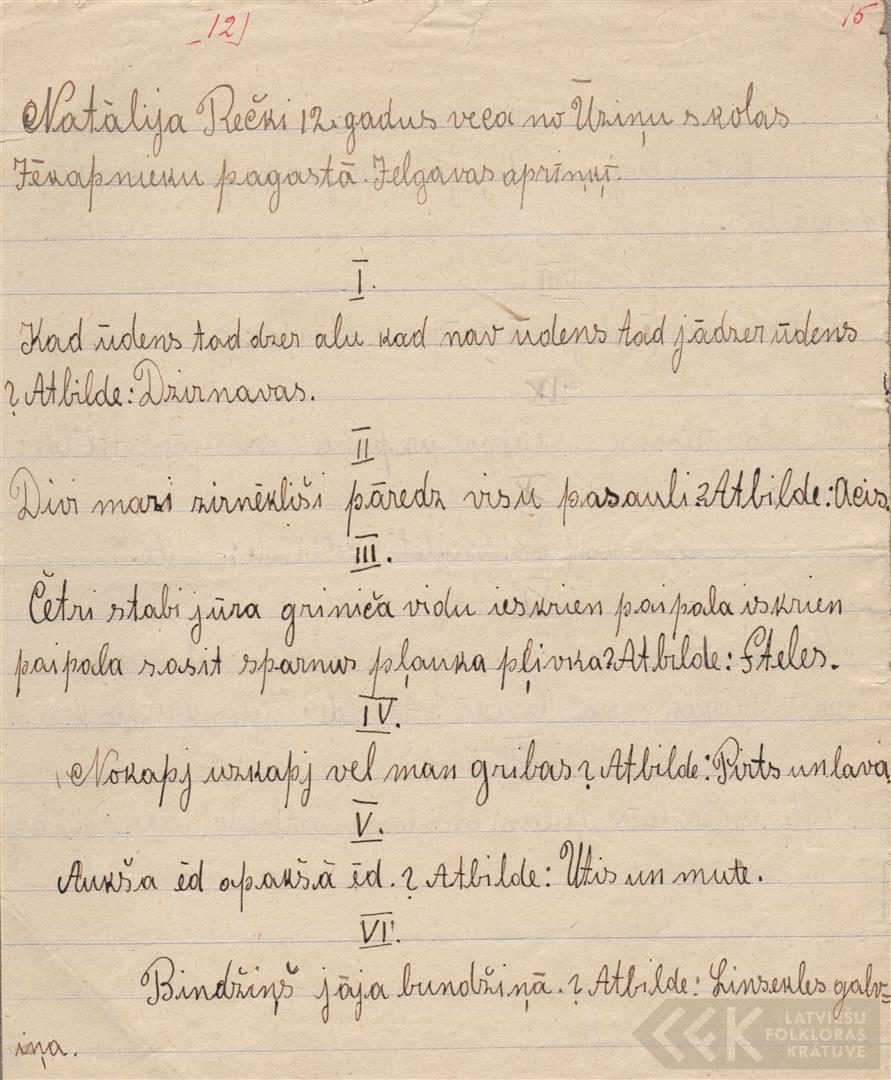 [12]
15
Natālija Rečki 12. gadus veca no Ūziņu skolas
Jēkapnieku pagastā. Jelgavas apriņķī.
I.
Kad ūdens tad dzer alu kad nav ūdens tad jādzer ūdens
? Atbilde: Dzirnavas.
II
Divi mazi zirnēkliši pāredz visu pasauli? Atbilde: Acis.
III.
Četri stabi jūra griniča vidu ieskrien paipala izskrien
paipala sasit sparnus pļauka pļivka? Atbilde: Steles.
IV.
Nokapj uzkapj vel man gribas? Atbilde: Pirts un lava
V.
Aukša ēd apakšā ēd.? Atbilde: Utis un mute.
VI.
Bindžiņš jāja bundžiņā.? Atbilde: Linsekles galv=
iņa.
LATVIEŠU
FOLKLORAS
KRĀTUVE